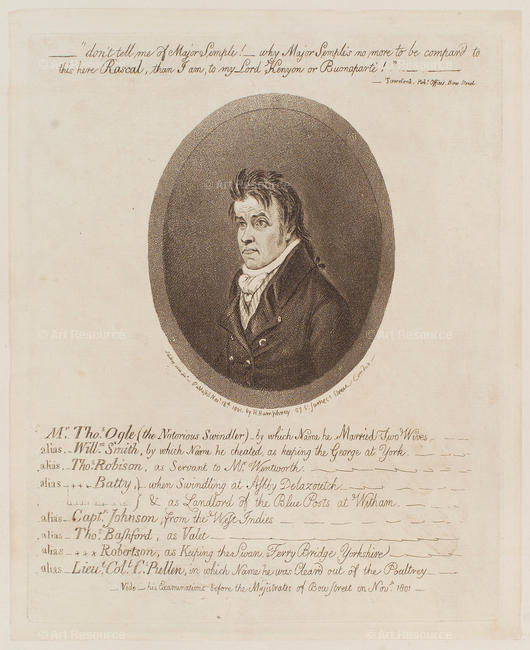 "don't tell me of Major Semple! — why Major Semple's no more to be compard to
this here Rascal, than I am, to my Lord Kenyon or Buonaparté!"
Townsend. Pub: Office. Bow Street
Publish'd Nov.r 18th 1801. by H. Humphrey 27 St James's Street London
Mr. Thos Ogle (the Notorious Swindler) — by which Name he Married Two Wives
alias — Willm Smith, by which Name he cheated, as keeping the George at York
alias — Thos Robison, as Servant to Mr. Wentworth.
alias — + + + Batty, when Swindling at Ashby Delazoutch
& as Landlord of the Blue Posts at Witham.
alias — Captn Johnson, from the West Indies
alias — Thos Bashford, as Valet
alias — + + x Robertson, as Keeping the Swan, Ferry Bridge Yorkshire
alias — Lieut Coll Cs Pullen, in which Name he was Cleard out of the Poultrey
Vide — his Examinations before the Majistrates of Bow Street on Novr 1801
© Art Resource